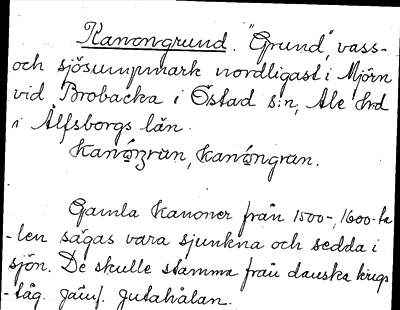 Kanongrund. "Grund", vass-
och sjösumpmark nordligast i Mjörn
vid Brobacka i Östad s:n, Ale hrd
i Älfsborgs län.
kanongran.
Gamla kanoner från 1500-, 1600-ta
-len sägas vara sjunkna och sedda i
sjön. De skulle stamma från danska krigs
-tåg. jämf. Jutahålan.